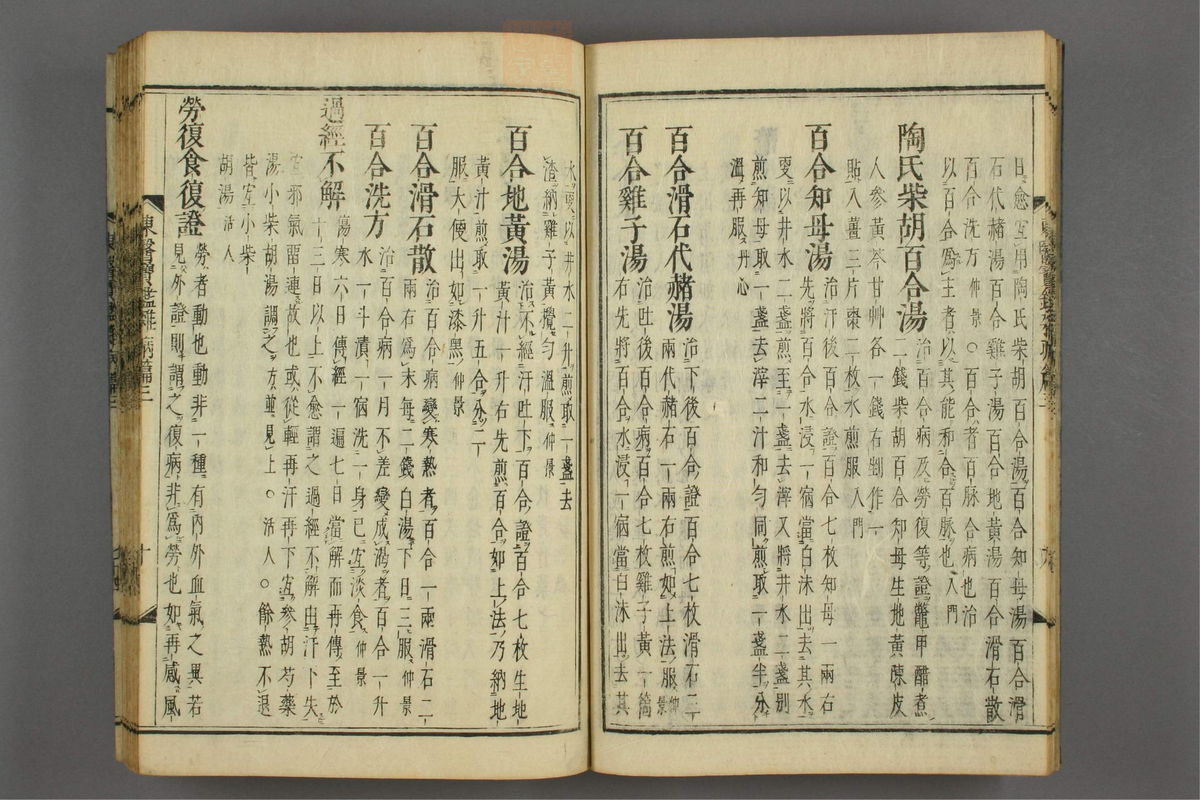 日愈宜用陶氏柴胡百合湯百合知母湯百合滑
石代赭湯百合雞子湯百合地黃湯百合滑石散
百合洗方仲景○百合者百脉合病也治
以百合爲主者以其能和合百脉也入門
陶氏柴胡百合湯 治百合病及勞復等證鼈甲醋煮
二錢柴胡百合知母生地黃陳皮
人參黃芩甘艸各一錢右剉作一
貼入薑三片棗二枚水煎服入門
百合知母湯 治汗後百合證百合七枚知母一兩右
先將百合水浸一宿當白沫出去其水
更以井水二盞煎至一盞去滓又將井水二盞別
煎知母取一盞去滓二汁和勻同煎取一盞半分
溫再服丹心
百合滑石代赭湯 治下後百合證百合七枚滑石三
兩代赭石一兩右煎如上法服仲景
百合雞子湯 治吐後百合病百合七枚雞子黃一箇
右先將百合水浸一宿當白沫出去其
水更以井水二升煎取一盞去
渣納雞子黃攪勻溫服仲景
百合地黃湯 治不經汗吐下百合證百合七枚生地
黃汁一升右先煎百合如上法乃納地
黃汁煎取一升五合分二
服大便出如漆黑仲景
百合滑石散 治百合病變寒熱者百合一兩滑石二
兩右爲末每二錢白湯下日三服仲景
百合洗方 治百合病一月不差變成渴者百合一升
水一斗漬一宿洗一身已宜淡食仲景
過經不解 傷寒六日傳經一遍七日當解而再傳至於
十三日以上不愈謂之過經不解由汗下失
宜邪氣留連故也或從輕再汗再下宜參胡芍藥
湯小柴胡湯調之方並見上○活人○餘熱不退
皆宜小柴
胡湯活人
勞復食復證 勞者動也動非一種有內外血氣之異若
見外證則謂之復病非爲勞也如再感風
東醫寶鑑雜病篇三
十